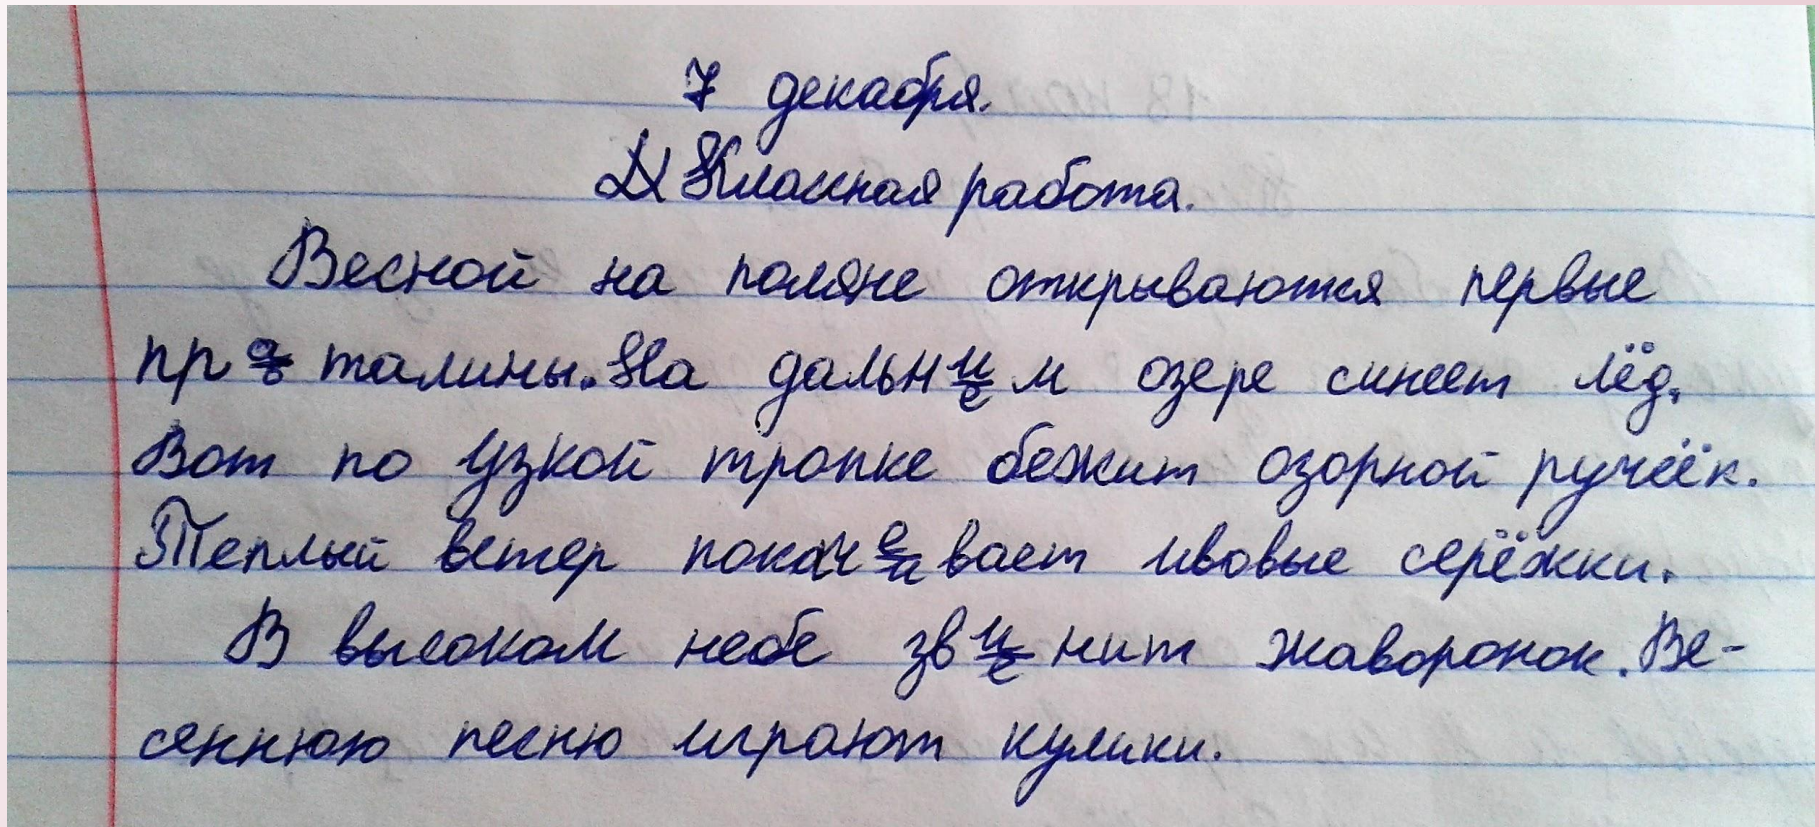 7 декабря.
Классная работа.
Весной на поляне открываются первые
пр а/о талины. На дальн и/е м озере синеет лёд.
Вот по узкой тропке бежит озорной ручеёк.
Теплый ветер покач е/и вает ивовые серёжки.
В высоком небе зв и/е нит жаворонок. Ве-
сеннюю песню играют кулики.